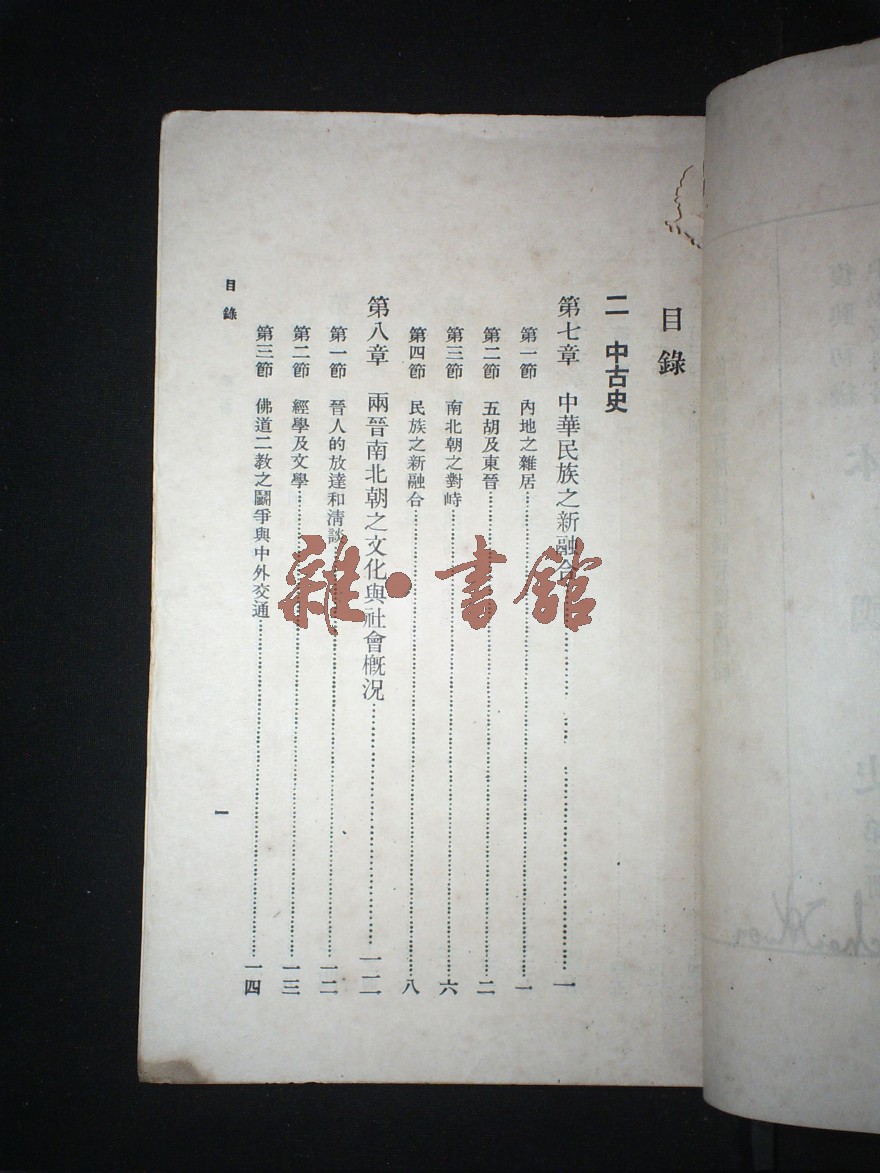 目錄
二 中古史
第七章 中華民族之新融合 一
第一節 內地之雜居 一
第二節 五胡及東晉 二
第三節 南北朝之對峙 六
第四節 民族之新融合 八
第八章 兩晉南北朝之文化與社會概況 一二
第一節 晉人的放達和清談 一二
第二節 經學及文學 一三
第三節 佛道二教之鬭爭與中外交通 一四
目錄
一
雜·書館